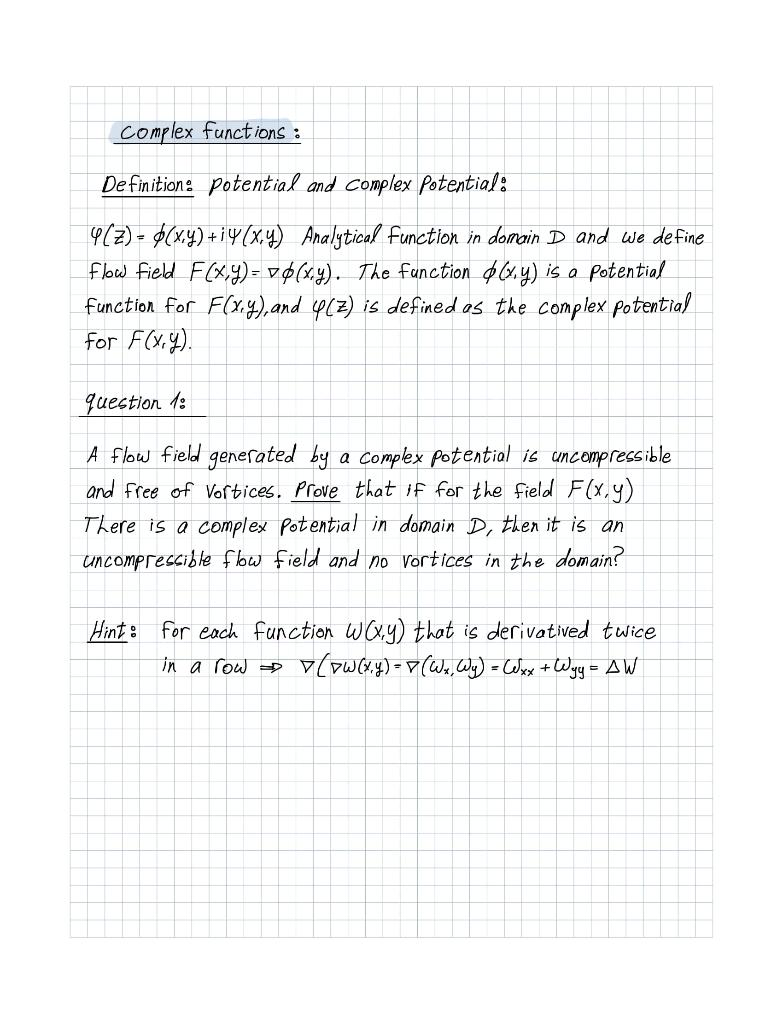 Complex functions:
Definition: Potential and Complex Potential:
φ(z) = ϕ(x,y) + iΨ(x,y) Analytical Function in domain D and we define
flow field F(x,y) = ∇ϕ(x,y). The function ϕ(x,y) is a potential
function for F(x,y), and φ(z) is defined as the complex potential
for F(x,y).
question 1:
A flow field generated by a complex potential is uncompressible
and free of vortices. Prove that if for the field F(x,y)
There is a complex Potential in domain D, then it is an
uncompressible flow field and no vortices in the domain?
Hint: For each function W(x,y) that is derivatived twice
in a row ⇒ ∇(∇W(x,y) = ∇(Wx, Wy) = Wxx + Wyy = ΔW